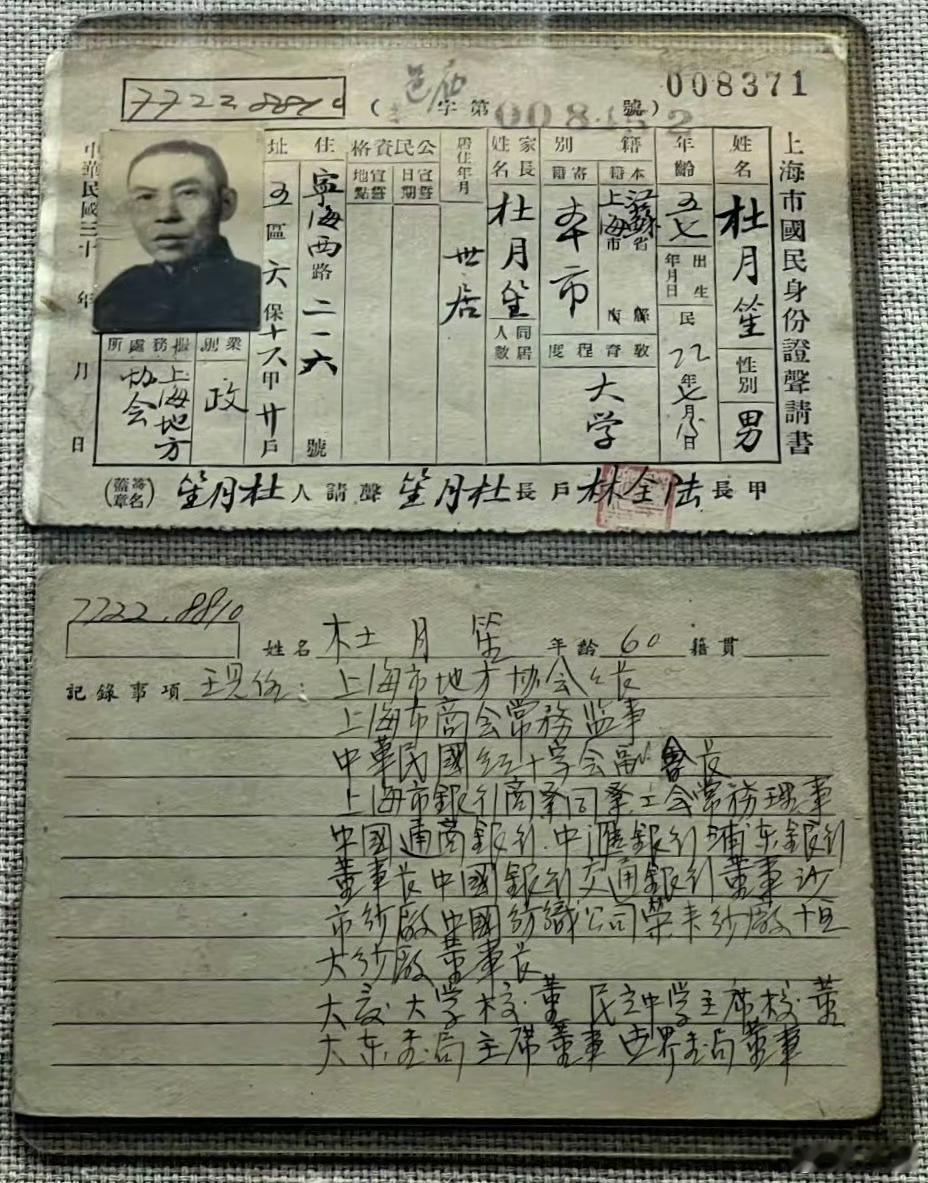 008371
7722.8810
(邑庙字第008452號)
上海市國民身份證聲請書
姓名 杜月笙 性別 男
年齡 五七 出生年月日 民 22年七月15日
籍別 本籍 江蘇省上海市縣 寄籍 本市
教育程度 大学
家長姓名 杜月笙 同居人數
居住年月 世居
公民資格 宣誓日期 宣誓地點
住址 寧海西路二一六號
五區六保十六甲廿戶
業別 政
服務處所 上海地方协会
中華民國三十 年 月 日
甲長 陆全林 戶長 杜月笙 聲請人 杜月笙 (簽名蓋章)
7722.8810
姓名 杜月笙 年齡 60 籍貫
記錄事項 现任：上海市地方协会会长
上海市商会常務监事
中華民國红十字会副會长
上海市銀行商業同業公会常務理事
中國通商銀行.中匯銀行浦东銀行
董事长中國銀行交通銀行董事沙
市纱廠中國纺織公司榮丰纱廠恒
大纱廠董事长
大夏大学校董 民立中学主席校董
大东书局主席董事世界书局董事